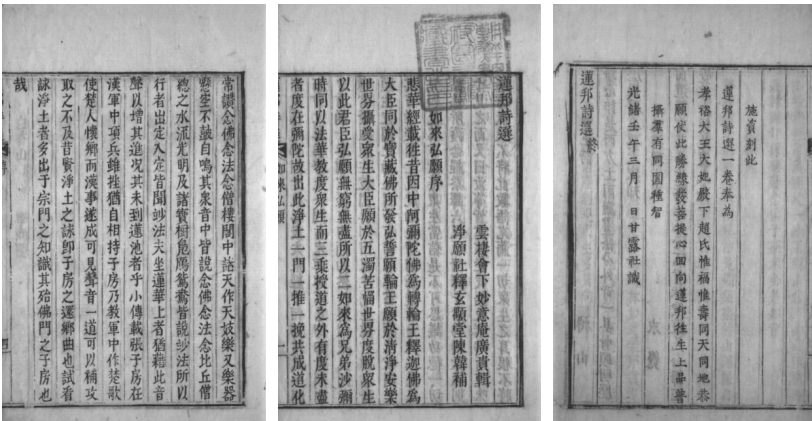 常讚念佛念法念僧樓閣中諸天作天妓樂又樂器
懸空不鼓自鳴其衆音中皆說念佛念法念比丘僧
總之水流光明及諸寶樹鳧鴈鴛鴦皆說妙法所以
行者出定入定皆聞妙法夫坐蓮華上者猶藉此音
聲以增其進况其未到蓮池者乎小傳載張子房在
漢軍中項兵雖挫猶自相持子房乃教軍中作楚歌
使楚人懷鄉而漢事遂成可見聲音一道可以補攻
取之不及昔賢淨土之詠卽子房之還鄉曲也試看
詠淨土者多出于宗門之知識其殆佛門之子房也
哉
蓮邦詩選
如來弘願序
雲棲會下妙意庵廣貴輯
淨願社釋玄顯堂陳韓補
悲華經載往昔因中阿彌陀佛爲轉輪王釋迦佛爲
大臣同於寶藏佛所發弘誓願輪王願於清淨安樂
世界攝受衆生大臣願於五濁苦惱世界度脫衆生
以此君臣弘願無窮無盡所以二如來爲兄弟沙彌
時同以法華教度衆生而三乘授道之外有度未盡
者度在彌陀故出此淨土一門一推一挽共成道化
如來弘願
施資刻此
蓮邦詩選一卷奉為
大王大地殿下趙氏惟福惟壽同天同地恭
願仗此勝緣發菩提心回向蓮邦往生上品普
攝羣有同圓種智
光緒壬午三月 日甘露社識
蓮邦詩選終